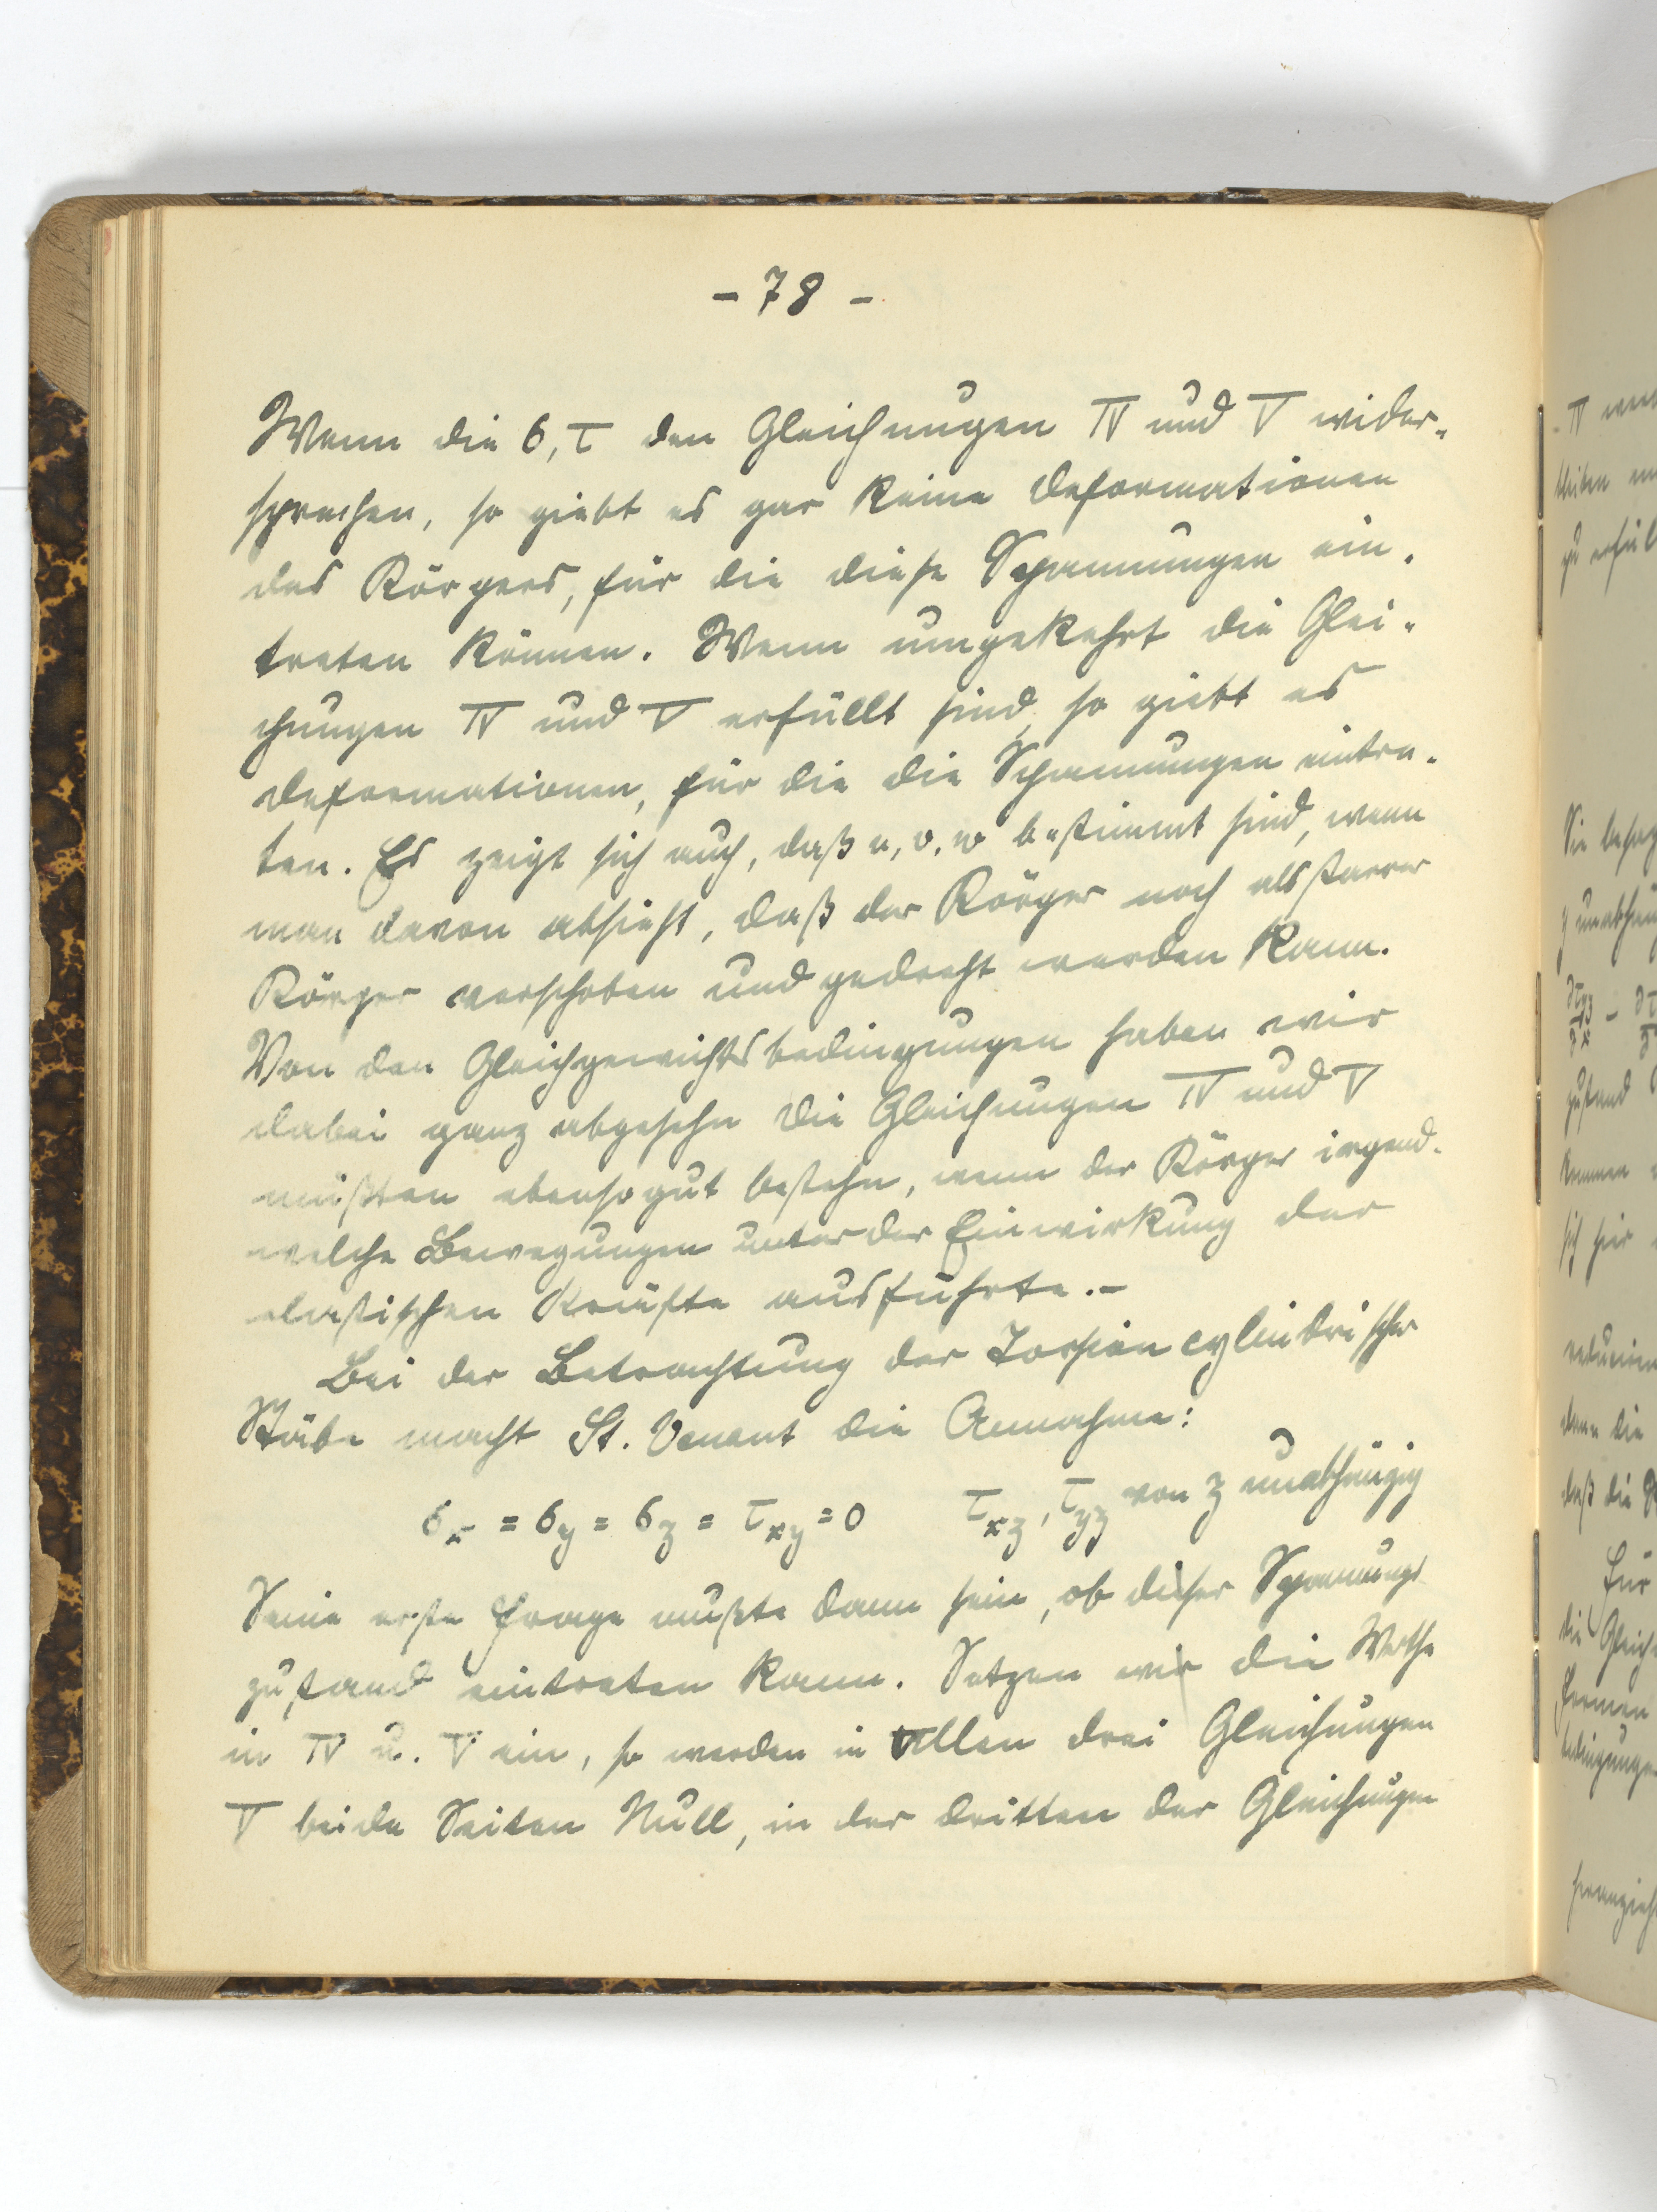 - 78 -
Wenn die σ, τ den Gleichungen IV und V wider-
sprechen, so giebt es gar keine Deformationen
des Körpers, für die diese Spannungen ein-
treten können. Wenn umgekehrt die Glei-
chungen IV und V erfüllt sind, so giebt es
Deformationen, für die die Spannungen eintre-
ten. Es zeigt sich auch, daß u, v, w bestimmt sind, wenn
man davon absieht, daß der Körper noch als starrer
Körper verschoben und gedreht werden kann.
Von den Gleichgewichtsbedingungen haben wir
dabei ganz abgesehn die Gleichungen IV und V
müßten ebensogut bestehn, wenn der Körper irgend-
welche Bewegungen unter der Einwirkung der
elastischen Kräfte ausführte.-
Bei der Betrachtung der Torsion cylindrischer
Stäbe macht St. Venant die Annahme:
σx = σy = σz = τxy = 0 τxz, τyz von z unabhängig
Seine erste Frage mußte dann sein, ob dieser Spannungs
zustand eintreten kann. Setzen wir die Werthe
in IV u. V ein, so werden in allen drei Gleichungen
V beide Seiten Null, in der dritten der Gleichungen